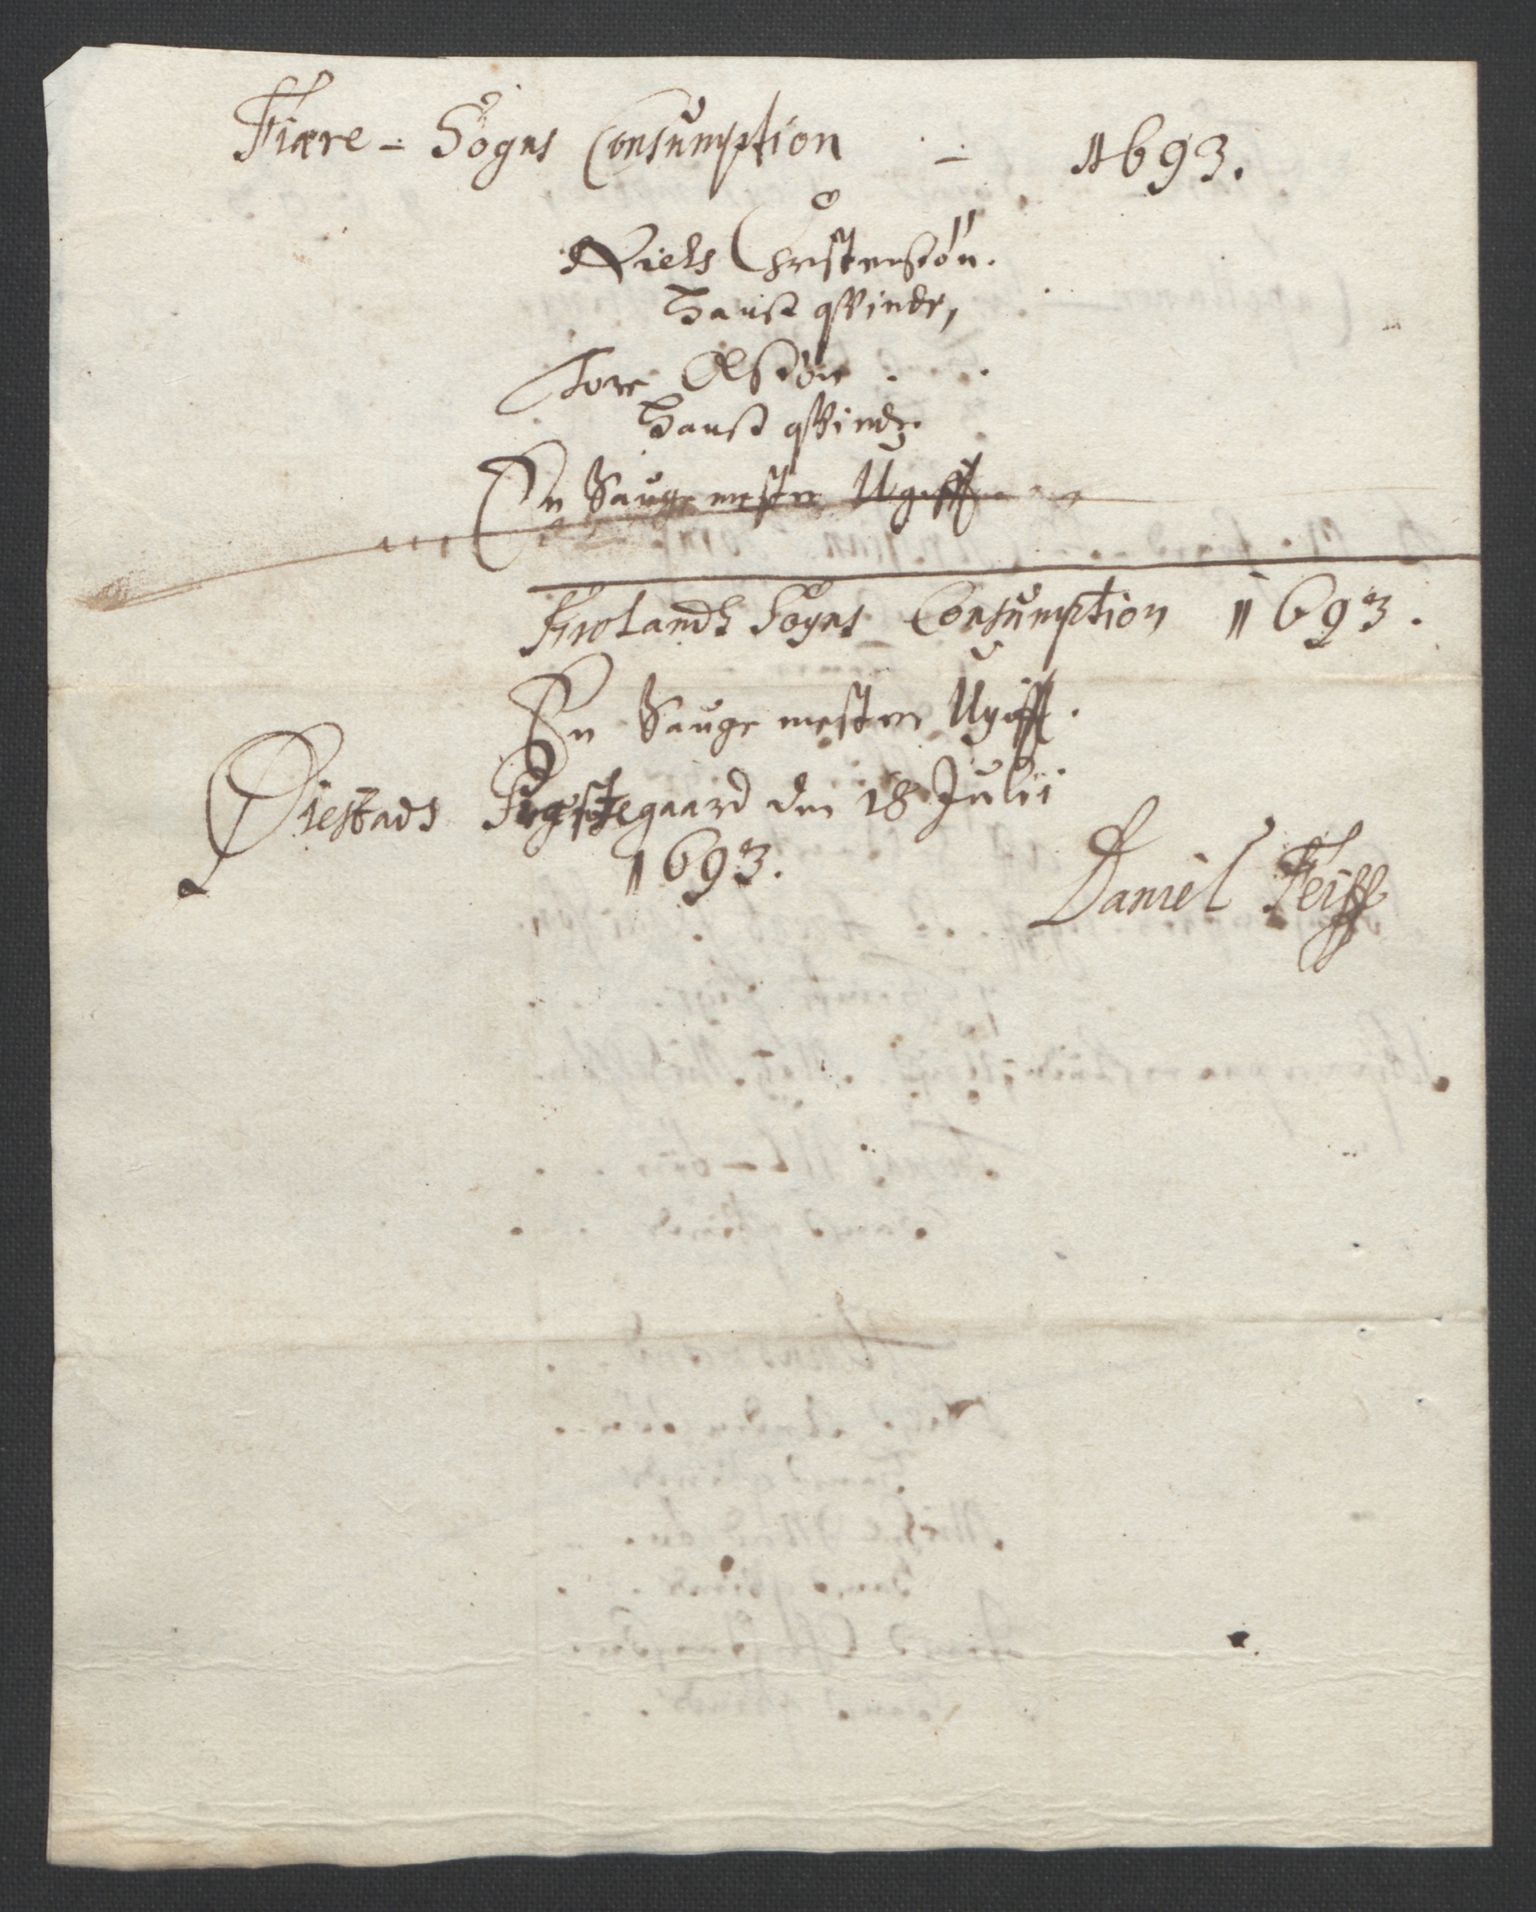 Fiære - Sogns Consumption - 1693.
Niels Christensøn.
hans qvinde,
Tore Olsøn .
hans qvinde
En Sauge mester Ugifft
Frolands Sogns Consumption 1693.
En Sauge mester Ugifft.
Øiestads Prestegaard den 18 Julii
1693.
Daniel Feiff